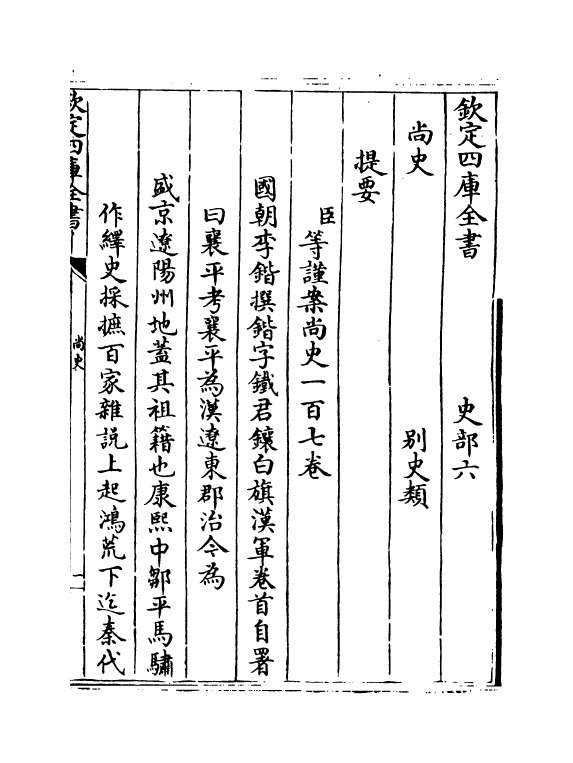 欽定四庫全書　史部六
尚史　別史類
提要
臣等謹案尚史一百七卷
國朝李鍇撰鍇字鐵君鑲白旗漢軍卷首自署
曰襄平考襄平為漢遼東郡治今為
盛京遼陽州地蓋其祖籍也康熙中鄒平馬驌
作繹史採摭百家雜説上起鴻荒下迄秦代
欽定四庫全書
尚史